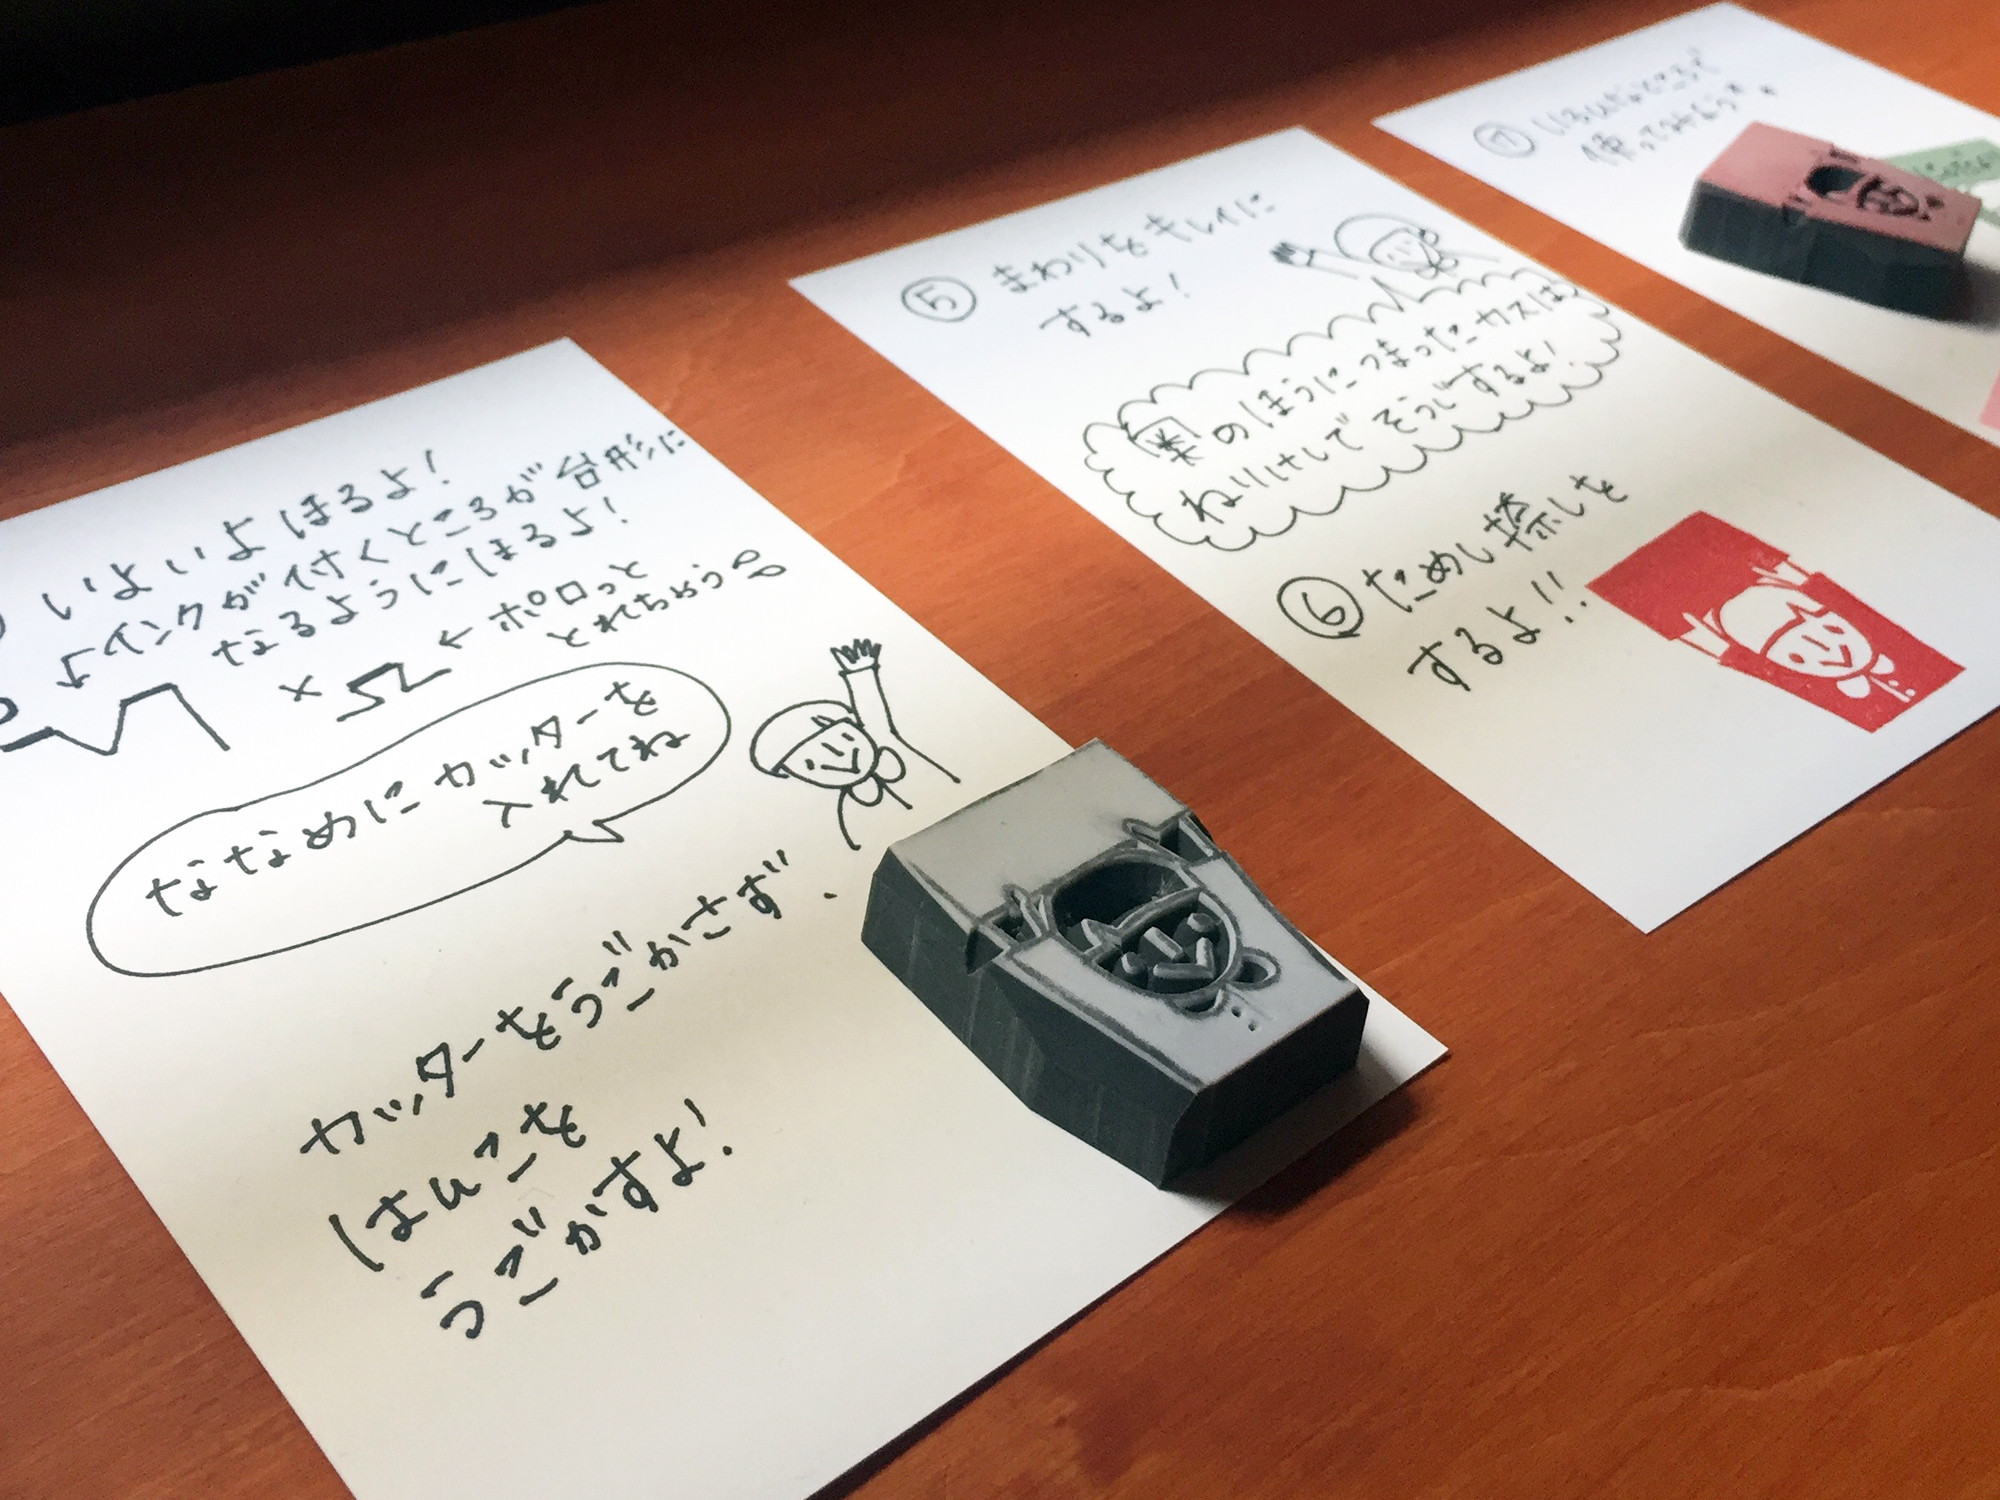 いよいよほるよ!
インクが付くところが台形に
なるようにほるよ!
× ← ポロっと
とれちゃう
ななめにカッターを
入れてね
カッターをうごかさず、
はんこを
うごかすよ!
⑤ まわりをキレイに
するよ!
奥のほうにつまったカスは
ねりけしでそうじするよ!
⑥ ためし捺しを
するよ!!
⑦ いろんなところで
使ってみよう